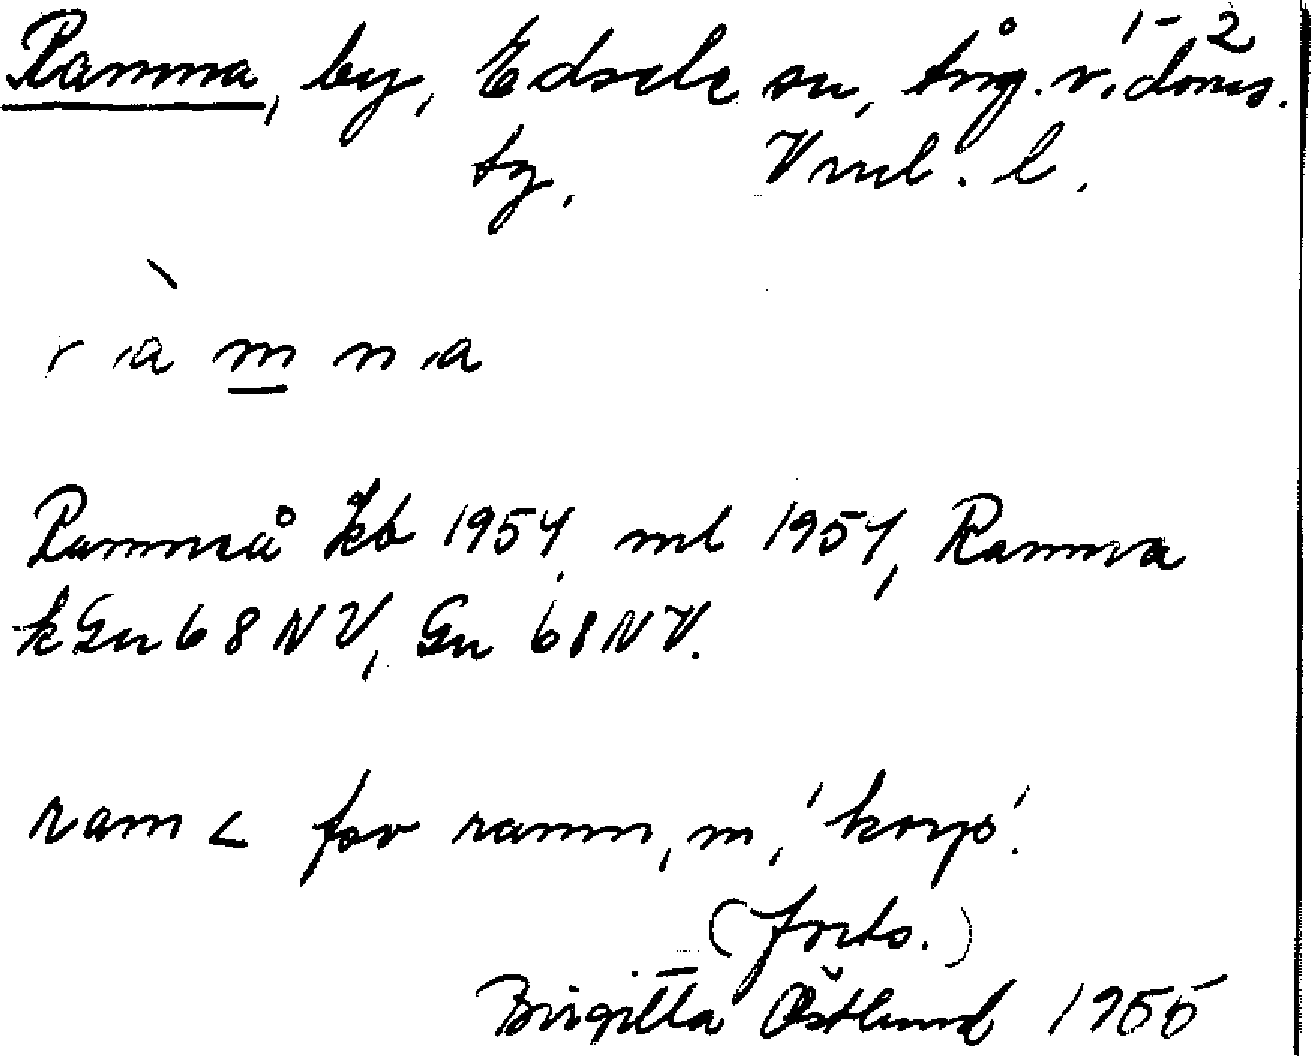 1-2
Ramna, by, Edsele sn, Ång. v. doms.
tg. Vnrl. l.
r a m n a
Ramnå kb 1954, ml 1954, Ramna
k Gn 68 NV, Gn 68 NV.
ram < fsv ramn, m, 'korp'.
(forts.)
Birgitta Östlund 1955